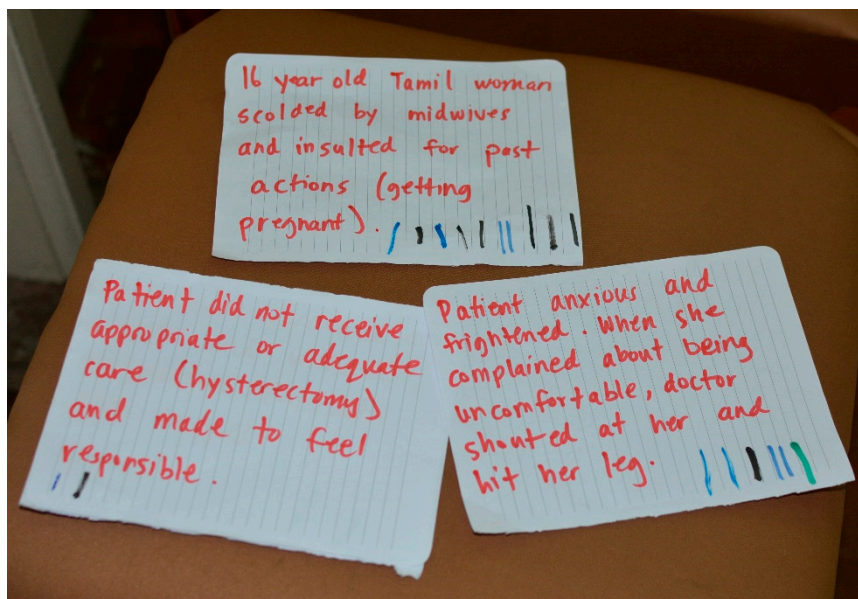 16 year old Tamil woman
scolded by midwives
and insulted for past
actions (getting
pregnant).
Patient did not receive
appropriate or adequate
care (hysterectomy)
and made to feel
responsible.
Patient anxious and
frightened. When she
complained about being
uncomfortable, doctor
shouted at her and
hit her leg.